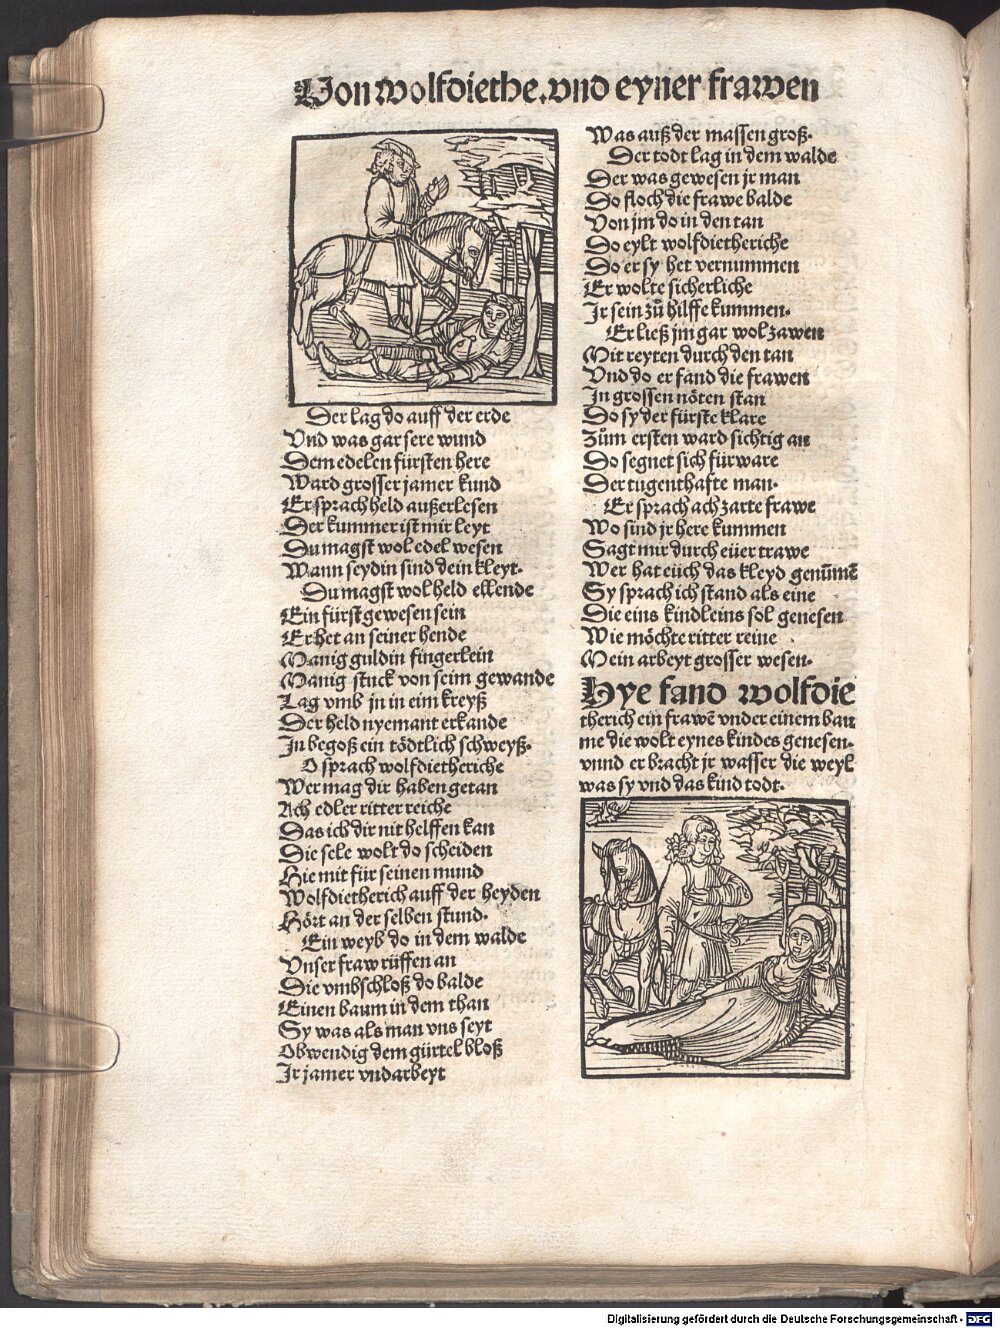 Von wolfdiethe. vnd eyner frawen
Der lag do auff der erde
Vnd was gar sere wund
Dem edelen fürsten here
Ward grosser jamer kund
Er sprach held außerlesen
Der kummer ist mir leyt
Du magst wol edel wesen
Wann seydin sind dein kleyt.
Du magst wol held ellende
Ein fürst gewesen sein
Er het an seiner hende
Manig guldin fingerlein
Manig stuck von seim gewande
Lag vmb jn in eim kreyß
Der held nyemant erkande
In begoß ein tödtlich schweyß.
O sprach wolfdietheriche
Wer mag dir haben getan
Ach edler ritter reiche
Das ich dir nit helffen kan
Die sele wolt do scheiden
Hie mit für seinen mund
Wolfdietherich auff der heyden
Hört an der selben stund.
Ein weyb do in dem walde
Vnser fraw rüffen an
Die vmbschloß do balde
Einen baum in dem than
Sy was als man vns seyt
Obwendig dem gürtel bloß
Ir jamer vnd arbeyt
Was auß der massen groß.
Der todt lag in dem walde
Der was gewesen jr man
Do floch die frawe balde
Von jm do in den tan
Do eylt wolfdietheriche
Do er sy het vernummen
Er wolte sicherliche
Ir sein zů hilffe kummen.
Er ließ jm gar wol zawen
Mit reyten durch den tan
Vnd do er fand die frawen
In grossen nöten stan
Do sy der fürste klare
Zům ersten ward sichtig an
Do segnet sich fürware
Der tugenthafte man.
Er sprach ach zarte frawe
Wo sind jr here kummen
Sagt mir durch eüer trawe
Wer hat eüch das kleyd genūmē
Sy sprach ich stand als eine
Die eins kindleins sol genesen
Wie möchte ritter reine
Mein arbeyt grosser wesen.
Hye fand wolfdie
therich ein frawē vnder einem bau
me die wolt eynes kindes genesen.
vnnd er bracht jr wasser die weyl
was sy vnd das kind todt.
Digitalisierung gefördert durch die Deutsche Forschungsgemeinschaft - DFG